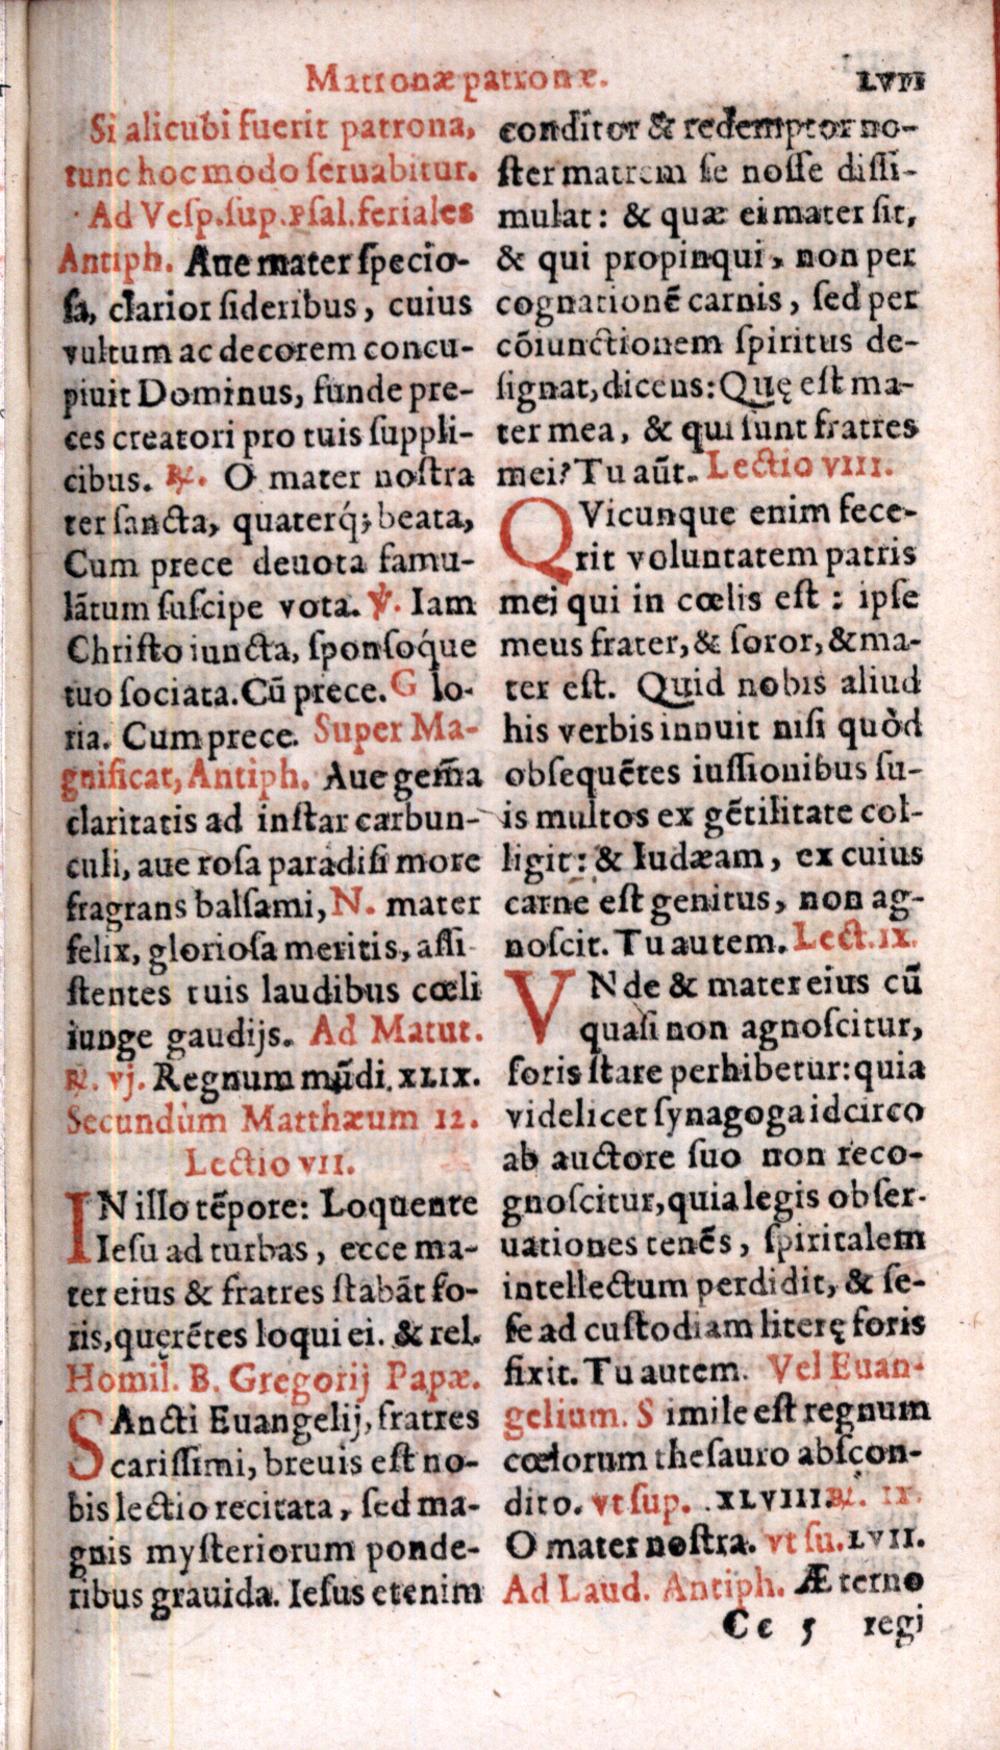 Matronæ patronæ. LVII
Si alicubi fuerit patrona,
tunc hoc modo seruabitur.
Ad Vesp. sup. Psal. feriales
Antiph. Aue mater specio-
sa, clarior sideribus, cuius
vultum ac decorem concu-
piuit Dominus, funde pre-
ces creatori pro tuis suppli-
cibus. ℟. O mater nostra
ter sancta, quaterq́; beata,
Cum prece deuota famu-
lãtum suscipe vota. ℣. Iam
Christo iuncta, sponsoq́ue
tuo sociata. Cũ prece. G lo-
ria. Cum prece. Super Ma-
gnificat, Antiph. Aue gem̃a
claritatis ad instar carbun-
culi, aue rosa paradisi more
fragrans balsami, N. mater
felix, gloriosa meritis, assi
stentes tuis laudibus cœli
iunge gaudijs. Ad Matut.
℟. vj. Regnum mũdi. XLIX.
Secundùm Matthæum 12.
Lectio VII.
IN illo tẽpore: Loquente
Iesu ad turbas, ecce ma-
ter eius & fratres stabãt fo-
ris, quęrẽtes loqui ei. & rel.
Homil. B. Gregorij Papæ.
SAncti Euangelij, fratres
carissimi, breuis est no-
bis lectio recitata, sed ma-
gnis mysteriorum ponde-
ribus grauida. Iesus etenim
conditor & redemptor no-
ster matrem se nosse dissi-
mulat: & quæ ei mater sit,
& qui propinqui, non per
cognationẽ carnis, sed per
cõiunctionem spiritus de-
signat, dicens: Quę est ma-
ter mea, & qui sunt fratres
mei? Tu aũt. Lectio VIII.
QVicunque enim fece-
rit voluntatem patris
mei qui in cœlis est: ipse
meus frater, & soror, & ma-
ter est. Quid nobis aliud
his verbis innuit nisi quòd
obsequẽtes iussionibus su-
is multos ex gẽtilitate col-
ligit: & Iudæam, ex cuius
carne est genitus, non ag-
noscit. Tu autem. Lect. IX.
VNde & mater eius cũ
quasi non agnoscitur,
foris stare perhibetur: quia
videlicet synagoga idcirco
ab auctore suo non reco-
gnoscitur, quia legis obser-
uationes tenẽs, spiritalem
intellectum perdidit, & se-
se ad custodiam literę foris
fixit. Tu autem. Vel Euan-
gelium. S imile est regnum
cœlorum thesauro abscon-
dito. vt sup. XLVIII. ℟. IX.
O mater nostra. vt su. LVII.
Ad Laud. Antiph. Æterno
Cc 5 regi